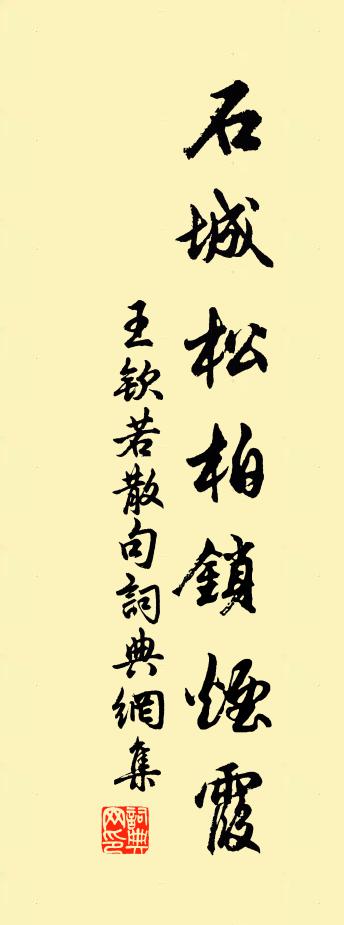 石城松柏鎖煙霞
王欽若散句詞典網集
詞典網印